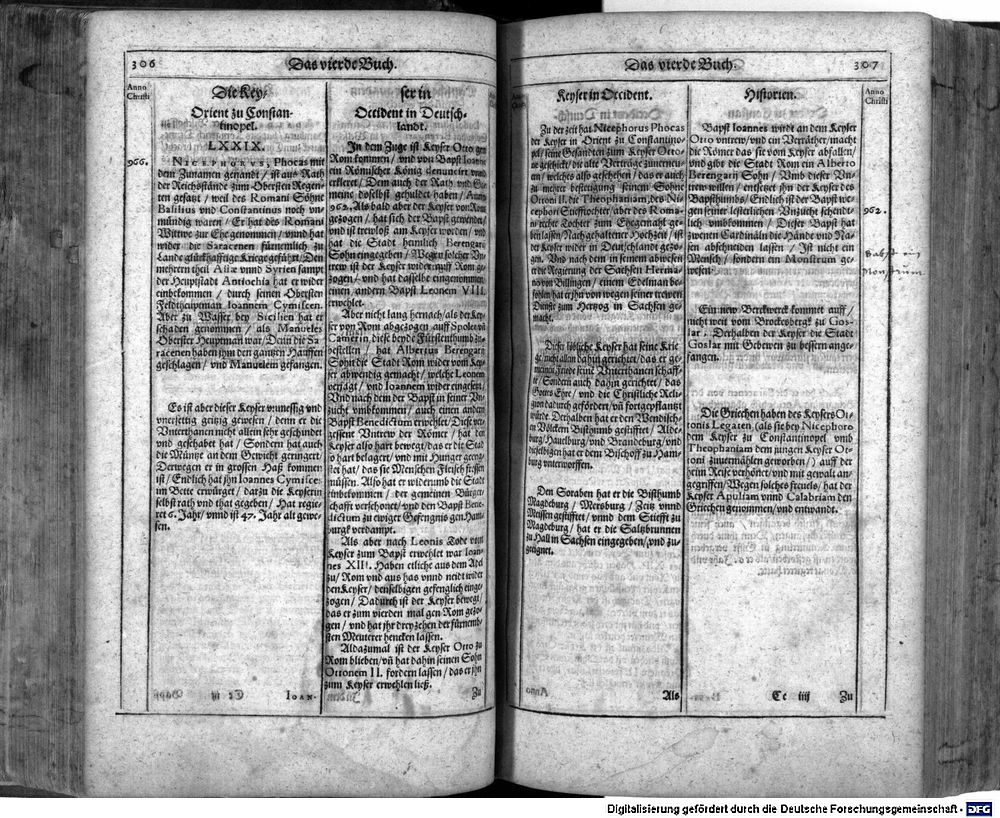 306
Das vierde Buch.
Anno
Christi
Die Key-
Orient zu Constan-
tinopel.
LXXIX.
966.
NICEPHORVS, Phocas mit
dem Zunamen genandt / ist aus Rath
der Reichsstände zum Obersten Regen-
ten gesatzt / weil des Romani Söhne
Basilius vnd Constantinus noch vn-
mündig waren / Er hat des Romani
Witwe zur Ehe genommen / vnnd hat
wider die Saracenen fürnemlich zu
Lande glückhafftige Kriege geführt / Den
mehrern theil Asiæ vnnd Syrien sampt
der Heuptstadt Antiochia hat er wider
einbekommen / durch seinen Obersten
Feldtheuptman Ioannem Cymiscen.
Aber zu Wasser bey Sicilien hat er
schaden genommen / als Manueles
Oberster Heuptman war / Denn die Sa-
racenen haben jhm den gantzen Hauffen
geschlagen / vnd Manuelem gefangen.
Es ist aber dieser Keyser vnmessig vnd
vnersettig geitzig gewesen / denn er die
Vnterthanen nicht allein sehr geschindet
vnd geschabet hat / Sondern hat auch
die Müntze an dem Gewicht geringert /
Derwegen er in grossen Haß kommen
ist / Endlich hat jhn Ioannes Cymisces
im Bette erwürget / darzu die Keyserin
selbst rath vnd that gegeben / Hat regie-
ret 6. Jahr / vnnd ist 47. Jahr alt gewe-
sen.
IOAN-
ser in
Occident in Deutsch-
landt.
In dem Zuge ist Keyser Otto gen
Rom kommen / vnd von Bapst Ioanne
ein Römischer König denuncirt vnnd
erkleret / Dem auch der Rath vnd Ge-
meine doselbst gehuldet haben / Anno
962. Als bald aber der Keyser von Rom
gezogen / hat sich der Bapst gewendet
vnd ist trewloß am Keyser worden / vnd
hat die Stadt heimlich Berengarij
Sohn eingegeben / Wegen solcher Vn-
trew ist der Keyser wider auff Rom ge-
zogen / vnd hat dasselbe eingenommen
einen andern Bapst Leonem VIII.
erwehlet.
Aber nicht lang hernach / als der Key-
ser von Rom abgezogen auff Spolet vñ
Camerin / diese beyde Fürstenthumb zu-
bestellen / hat Albertus Berengarij
Sohn die Stadt Rom wider vom Key-
ser abwendig gemacht / welche Leonem
verjagt / vnd Ioannem wider eingesetzt.
Vnd nach dem der Bapst in seiner Vn-
zucht vmbkommen / auch einen andern
Bapst Benedictum erwehlet / Diese ver-
gessene Vntrew der Römer / hat den
Keyser also hart bewegt / das er die Stad
so hart belagert / vnd mit Hunger geeng-
stet hat / das sie Menschen Fleisch fressen
müssen. Also hat er widerumb die Stadt
einbekommen / der gemeinen Bürger-
schafft verschonet / vnd den Bapst Bene-
dictum zu ewiger Gefengnis gen Ham-
burgk verdampt.
Als aber nach Leonis Tode vom
Keyser zum Bapst erwehlet war Ioan-
nes XIII. Haben etliche aus dem Adel
zu Rom vnd aus has vnnd neidt wider
den Keyser / denselbigen gefenglich einge-
zogen / Dadurch ist der Keyser bewegt /
das er zum vierden mal gen Rom gezo-
gen / vnd hat jhr dreyzehen der fürnemb-
sten Meuterer hencken lassen.
Aldazumal ist der Keyser Otto zu
Rom blieben / vñ hat dahin seinen Sohn
Ottonem II. fordern lassen / das er jhn
zum Keyser erwehlen ließ.
Zu
Das vierde Buch.
307
Anno
Christi
Keyser in Occident.
Zu der zeit hat Nicephorus Phocas
der Keyser in Orient zu Constantino-
pel / seine Gesandten zum Keyser Otto
geschickt / die alte Verträge zuuerneu-
ern / welches also geschehen / das er auch
zu mehrer bestetigung seinem Sohne
Ottoni II. die Theophaniam, des Ni-
cephori Stieftochter / aber des Roma-
ni rechte Tochter zum Ehegemahl ge-
ben lassen / Nach gehaltener Hochzeit / ist
der Keyser wider in Deutschlandt gezo-
gen. Vnd nach dem in seinem abwesen
er die Regierung der Sachsen Herma-
no von Billingen / einem Edelman be-
fohlen hat er jhn von wegen seiner trewen
Dienste zum Hertzog in Sachsen ge-
macht.
Dieser löbliche Keyser hat seine Krie-
ge nicht allein dahin gerichtet / das er ge-
meinen Friede seine Vnterthanen schaff-
te / Sondern auch dahin gerichtet / das
Gottes Ehre / vnd die Christliche Reli-
gion dadurch gefördert / vñ fortgepflantzt
würde. Derhalben hat er den Wendisch-
en Völckern Bisthumb gestifftet / Alde-
burg / Hauelburg / vnd Brandeburg / vnd
dieselbigen hat er dem Bischoff zu Ham-
burg vnterworffen.
Den Soraben hat er die Bisthumb
Magdeburg / Mersburg / Zeitz vnnd
Meissen gestifftet / vnnd dem Stiefft zu
Magdeburg / hat er die Saltzbrunnen
zu Hall in Sachsen eingegeben / vnd zu-
geeignet.
Als
Historien.
Bapst Ioannes wirdt an dem Keyser
Otto vntrew / vnd ein Verräther / macht
die Römer das sie vom Keyser abfallen /
vnd gibt die Stadt Rom ein Alberto
Berengarij Sohn / Vmb dieser Vn-
trew willen / entsetzt jhn der Keyser des
Bapsthumbs / Endlich ist der Bapst we-
gen seiner lesterlichen Vnzucht schendt-
lich vmbkommen / Dieser Bapst hat
zweyen Cardinäln die Hände vnd Na-
sen abschneiden lassen / Ist nicht ein
Mensch / sondern ein Monstrum ge-
wesen.
962.
Babst ein
Monstrum
Ein new Berckwerck kommet auff /
nicht weit vom Brockesbergk zu Gos-
lar. Derhalben der Keyser die Stadt
Goslar mit Gebewen zu bessern ange-
fangen.
Die Griechen haben des Keysers Ot-
tonis Legaten, (als sie bey Nicephoro
dem Keyser zu Constantinopel vmb
Theophaniam dem jungen Keyser Ot-
toni zuuermählen geworben /) auff der
heim Reise verhönet / vnd mit gewalt an-
gegriffen / Wegen solches freuels / hat der
Keyser Apuliam vnnd Calabriam den
Griechen genommen / vnd entwandt.
Cc iiij
Zu
Digitalisierung gefördert durch die Deutsche Forschungsgemeinschaft - DFG